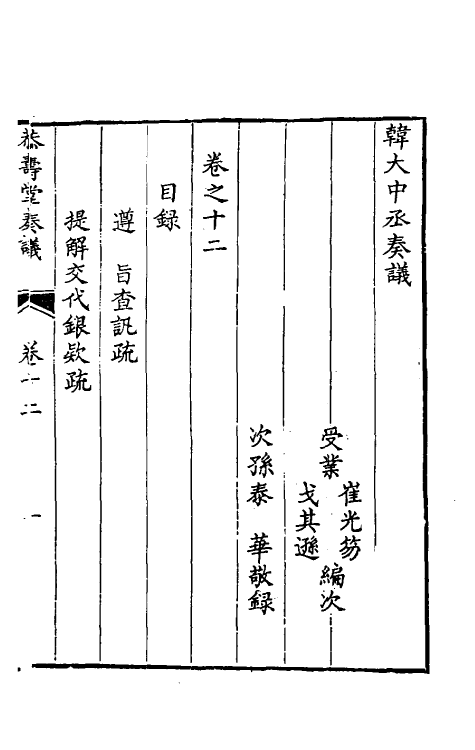 韓大中丞奏議
受業 崔光笏 戈其遜 編次
次孫泰 華敬録
卷之十二
目録
遵 旨查訊疏
提解交代銀欵疏
恭壽堂奏議 卷十二 一